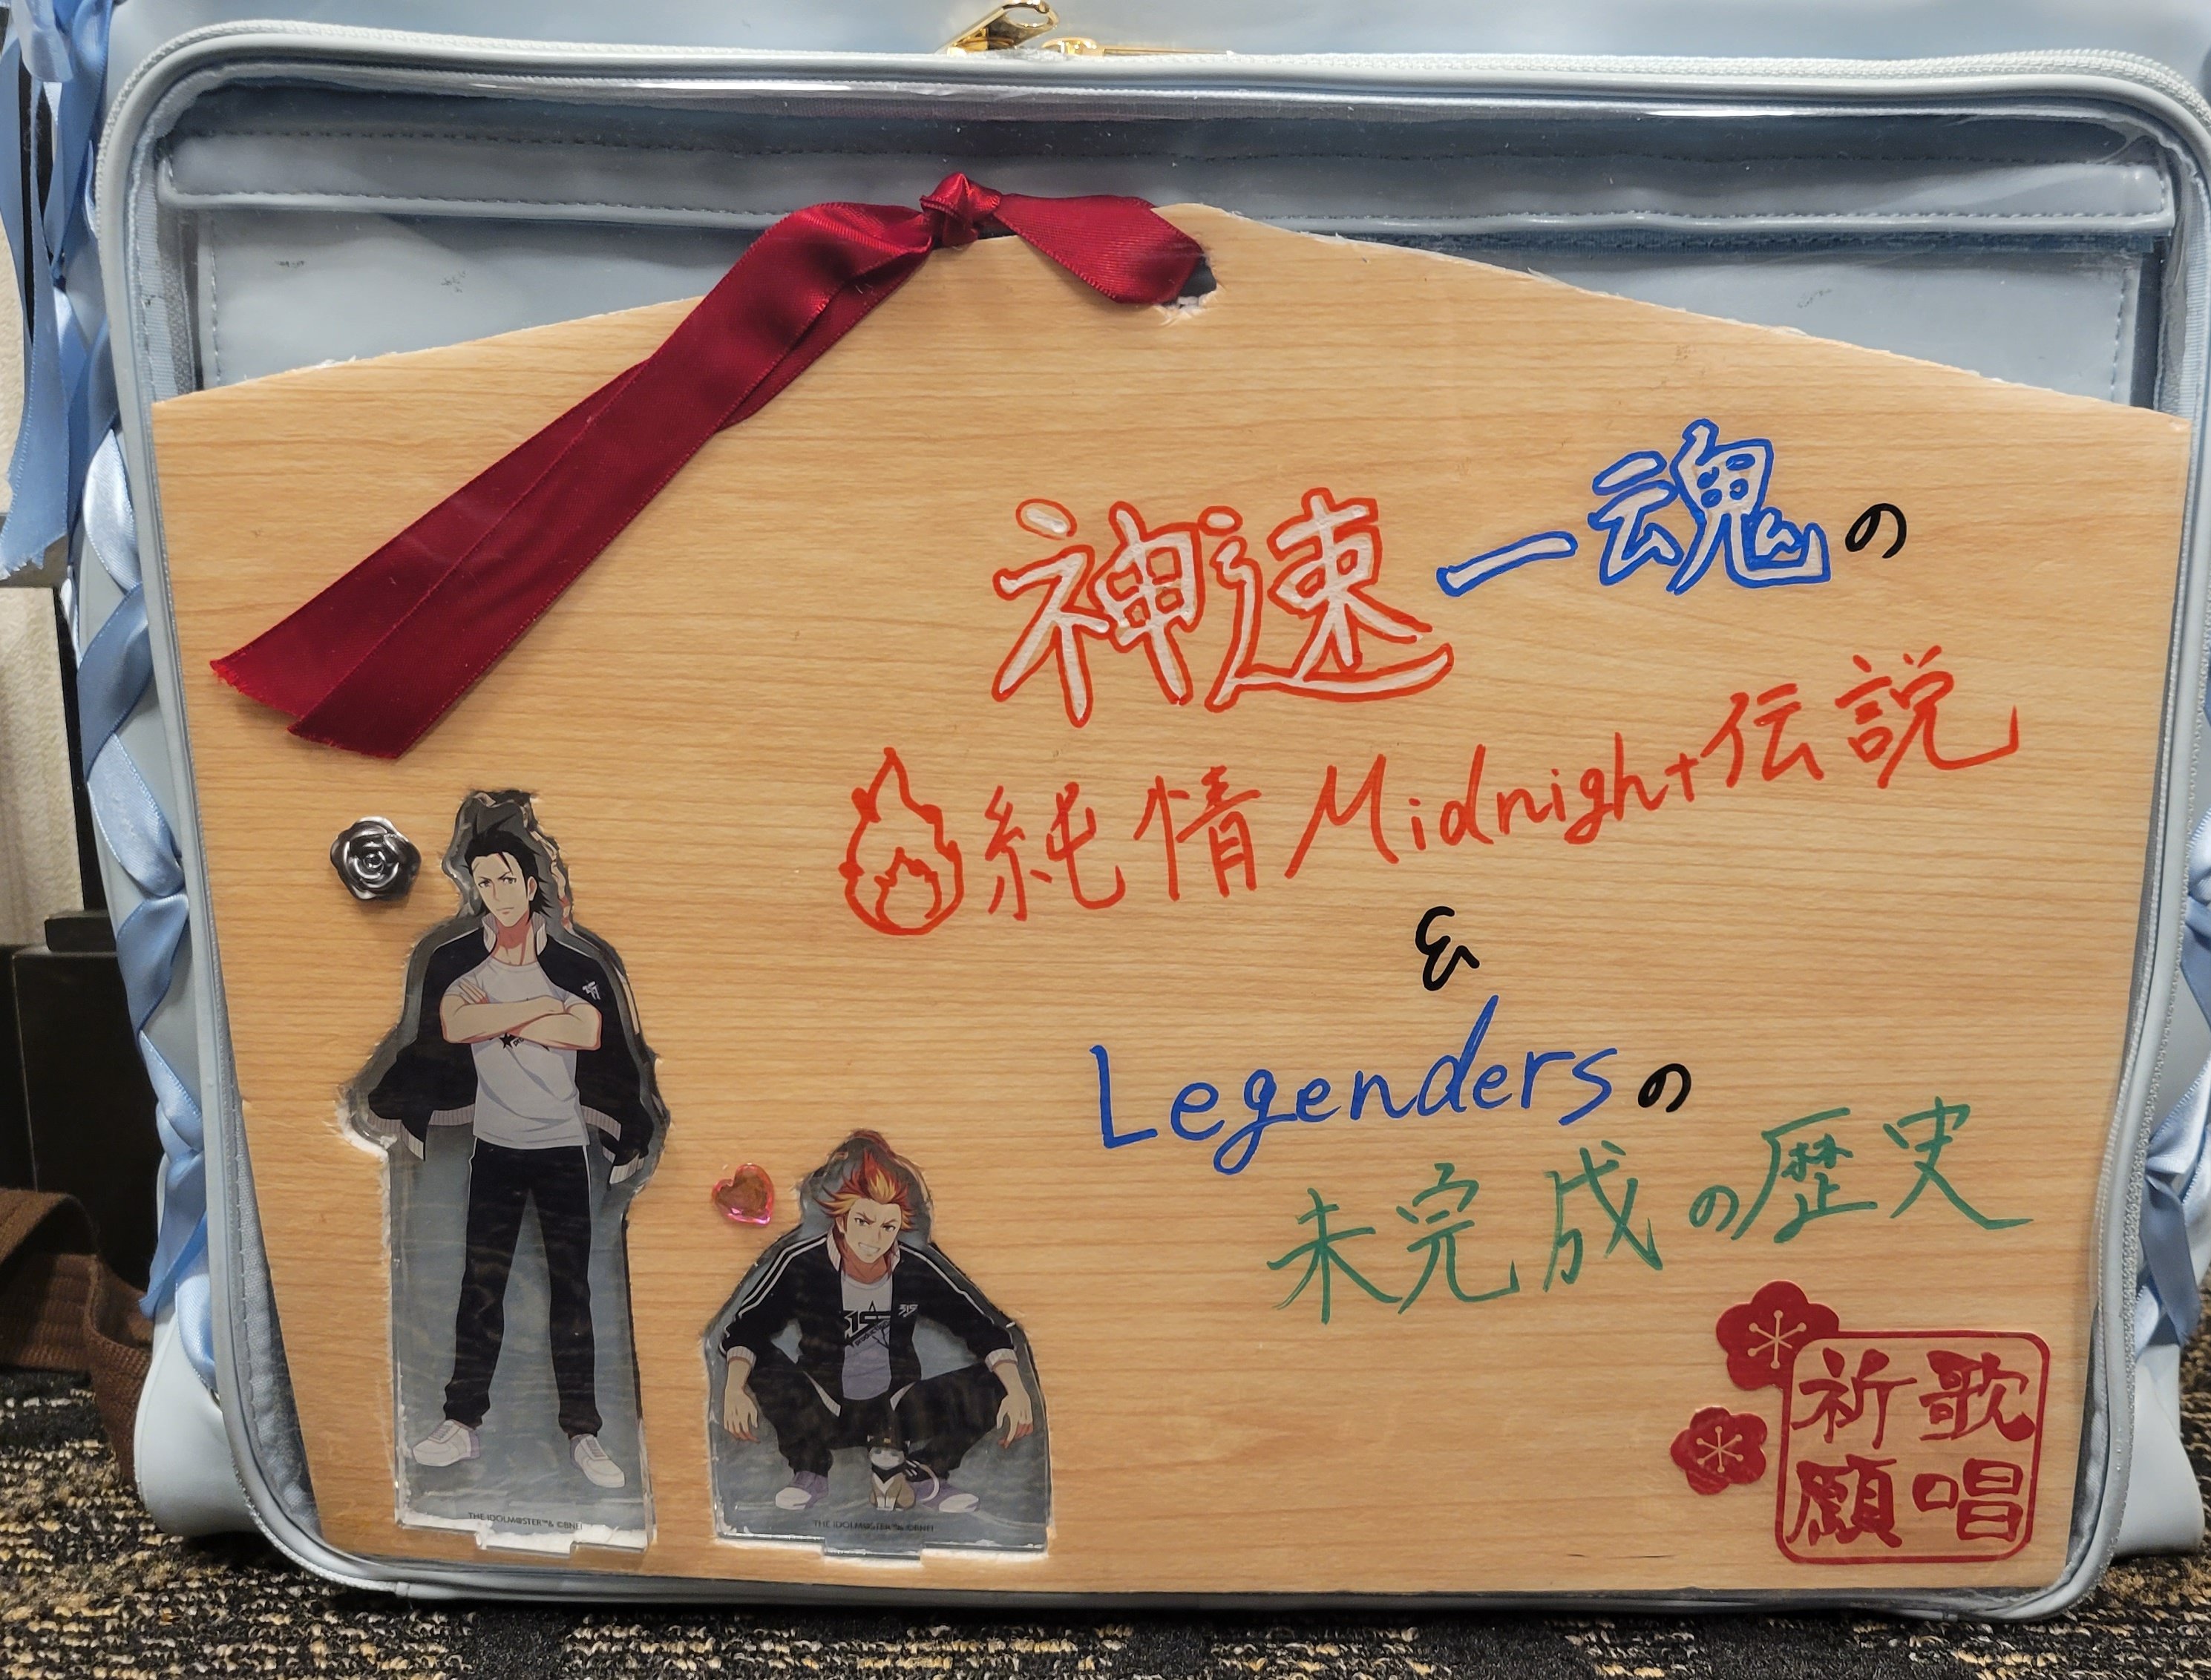 神速一魂の
純情Midnight伝説
&
Legendersの
未完成の歴史
歌唱
祈願
315
315
THE IDOLM@STER™& ©BNEI
THE IDOLM@STER™& ©BNEI